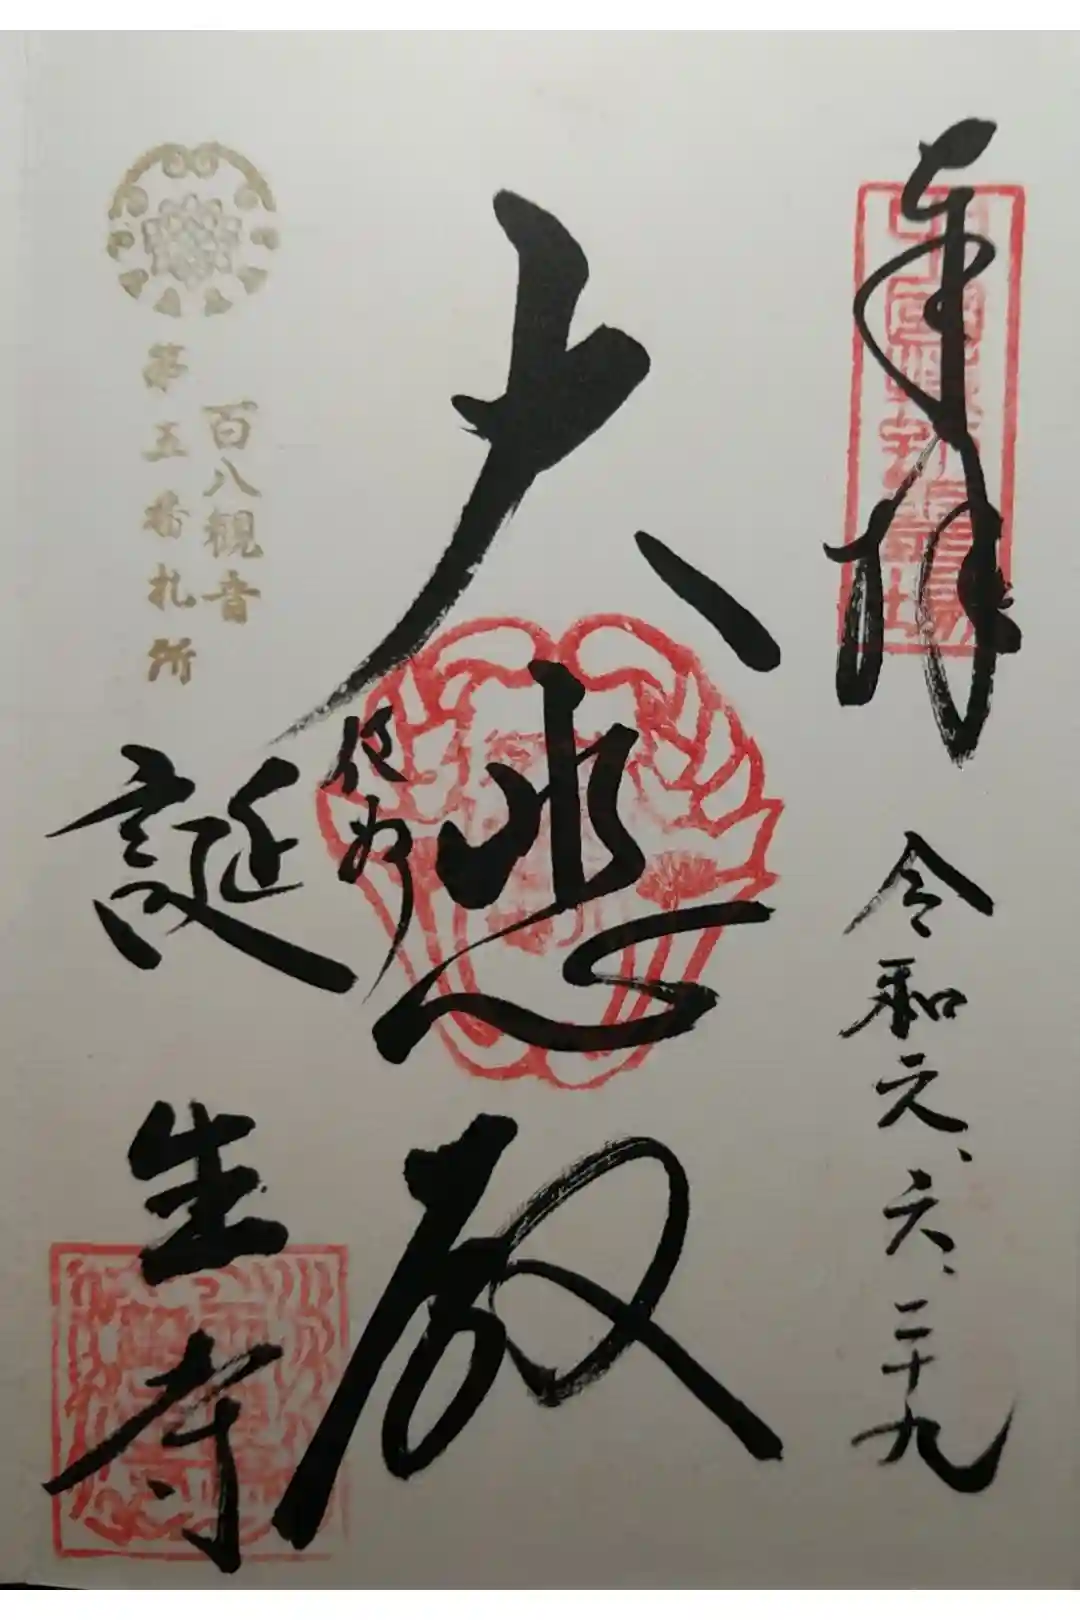 奉拝
令和元、六、二十九
大悲殿
誕生寺
百八観音
第五番札所